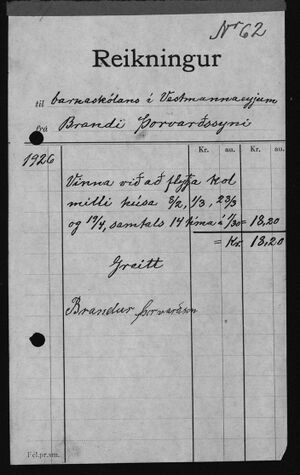 Nr 62
Reikningur
til barnaskólans í Vestmannaeyjum
frá Brandi Þorvarðssyni
Kr. au. Kr. au.
1926
Vinna við að flytja kol
milli húsa 8/2, 1/3, 23/3
og 19/4, samtals 14 tíma á 1/30 = 18,20
= Kr 18,20
Greitt
Brandur Þorvarðsson
Fél.pr.sm.